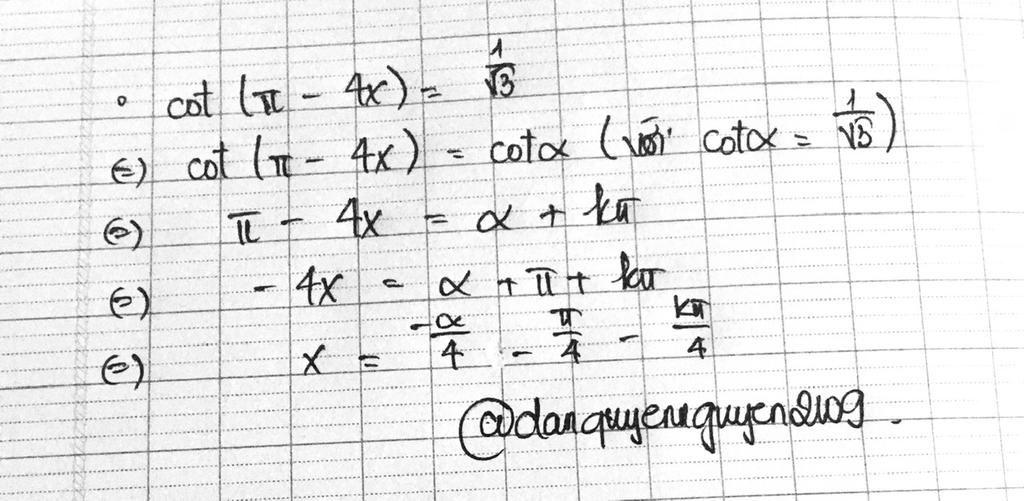 • cot (π - 4x) = 1/√3
⇔ cot (π - 4x) = cotα (với cotα = 1/√3)
⇔ π - 4x = α + kπ
⇔ - 4x = α + π + kπ
⇔ x = -α/4 - π/4 - kπ/4
@danquyennguyen2109.